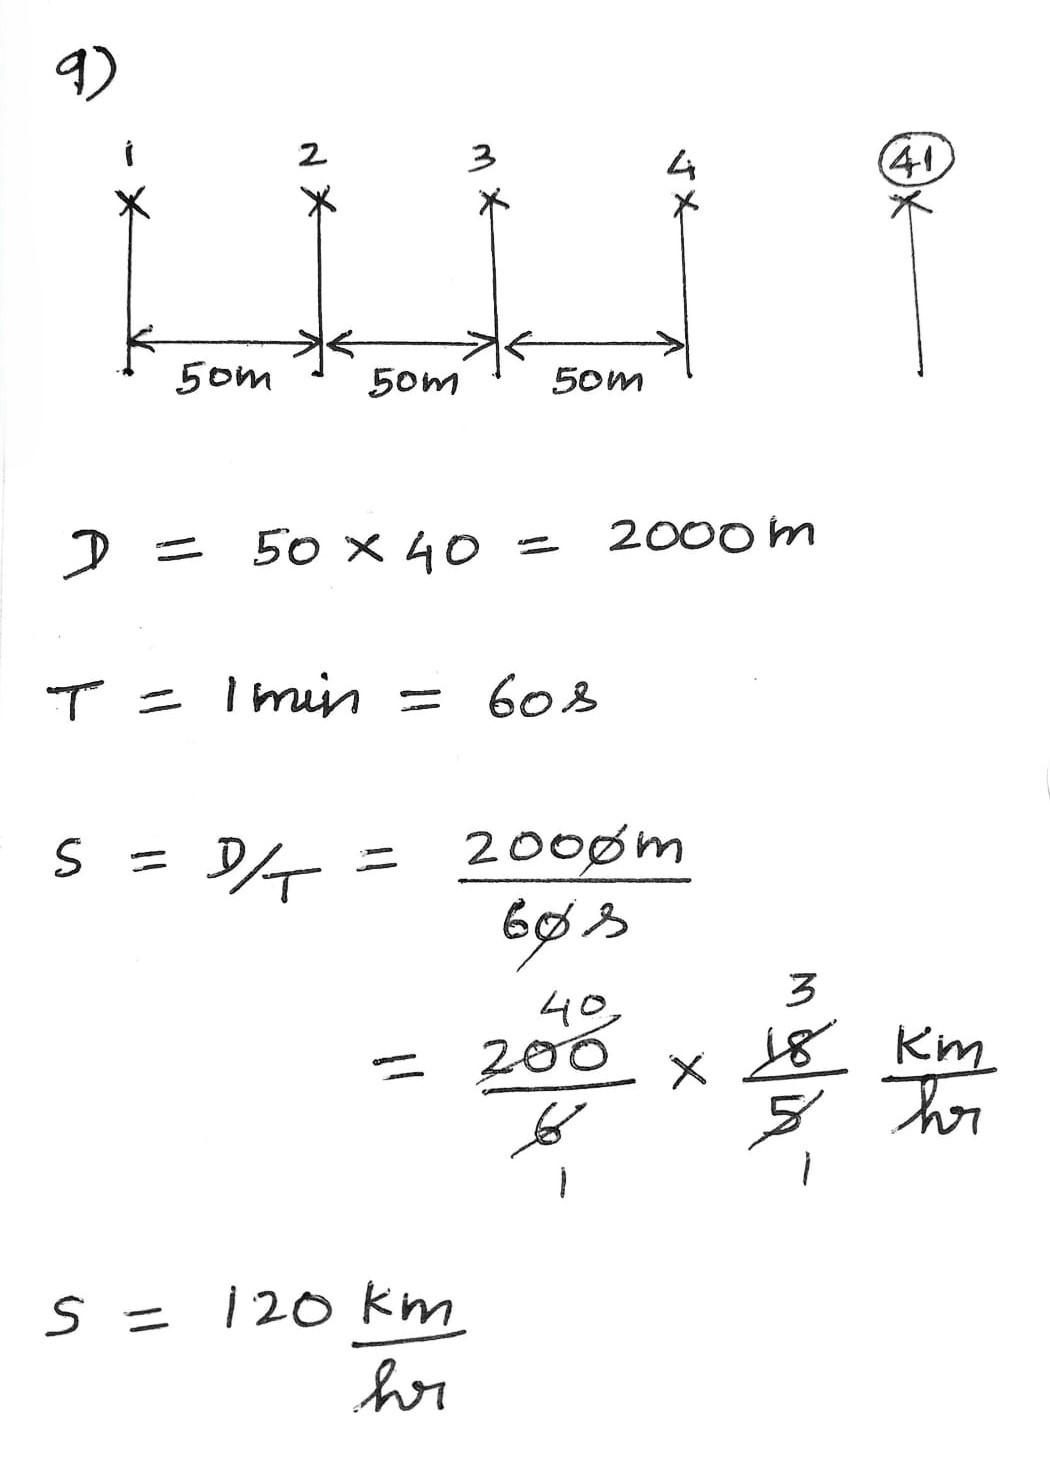 9)
1 2 3 4 41
50m 50m 50m
D = 50 × 40 = 2000m
T = 1 min = 60s
S = D/T = 2000m
60s
40 3
= 200 × 18 Km
6 5 hr
1 1
S = 120 Km
hr